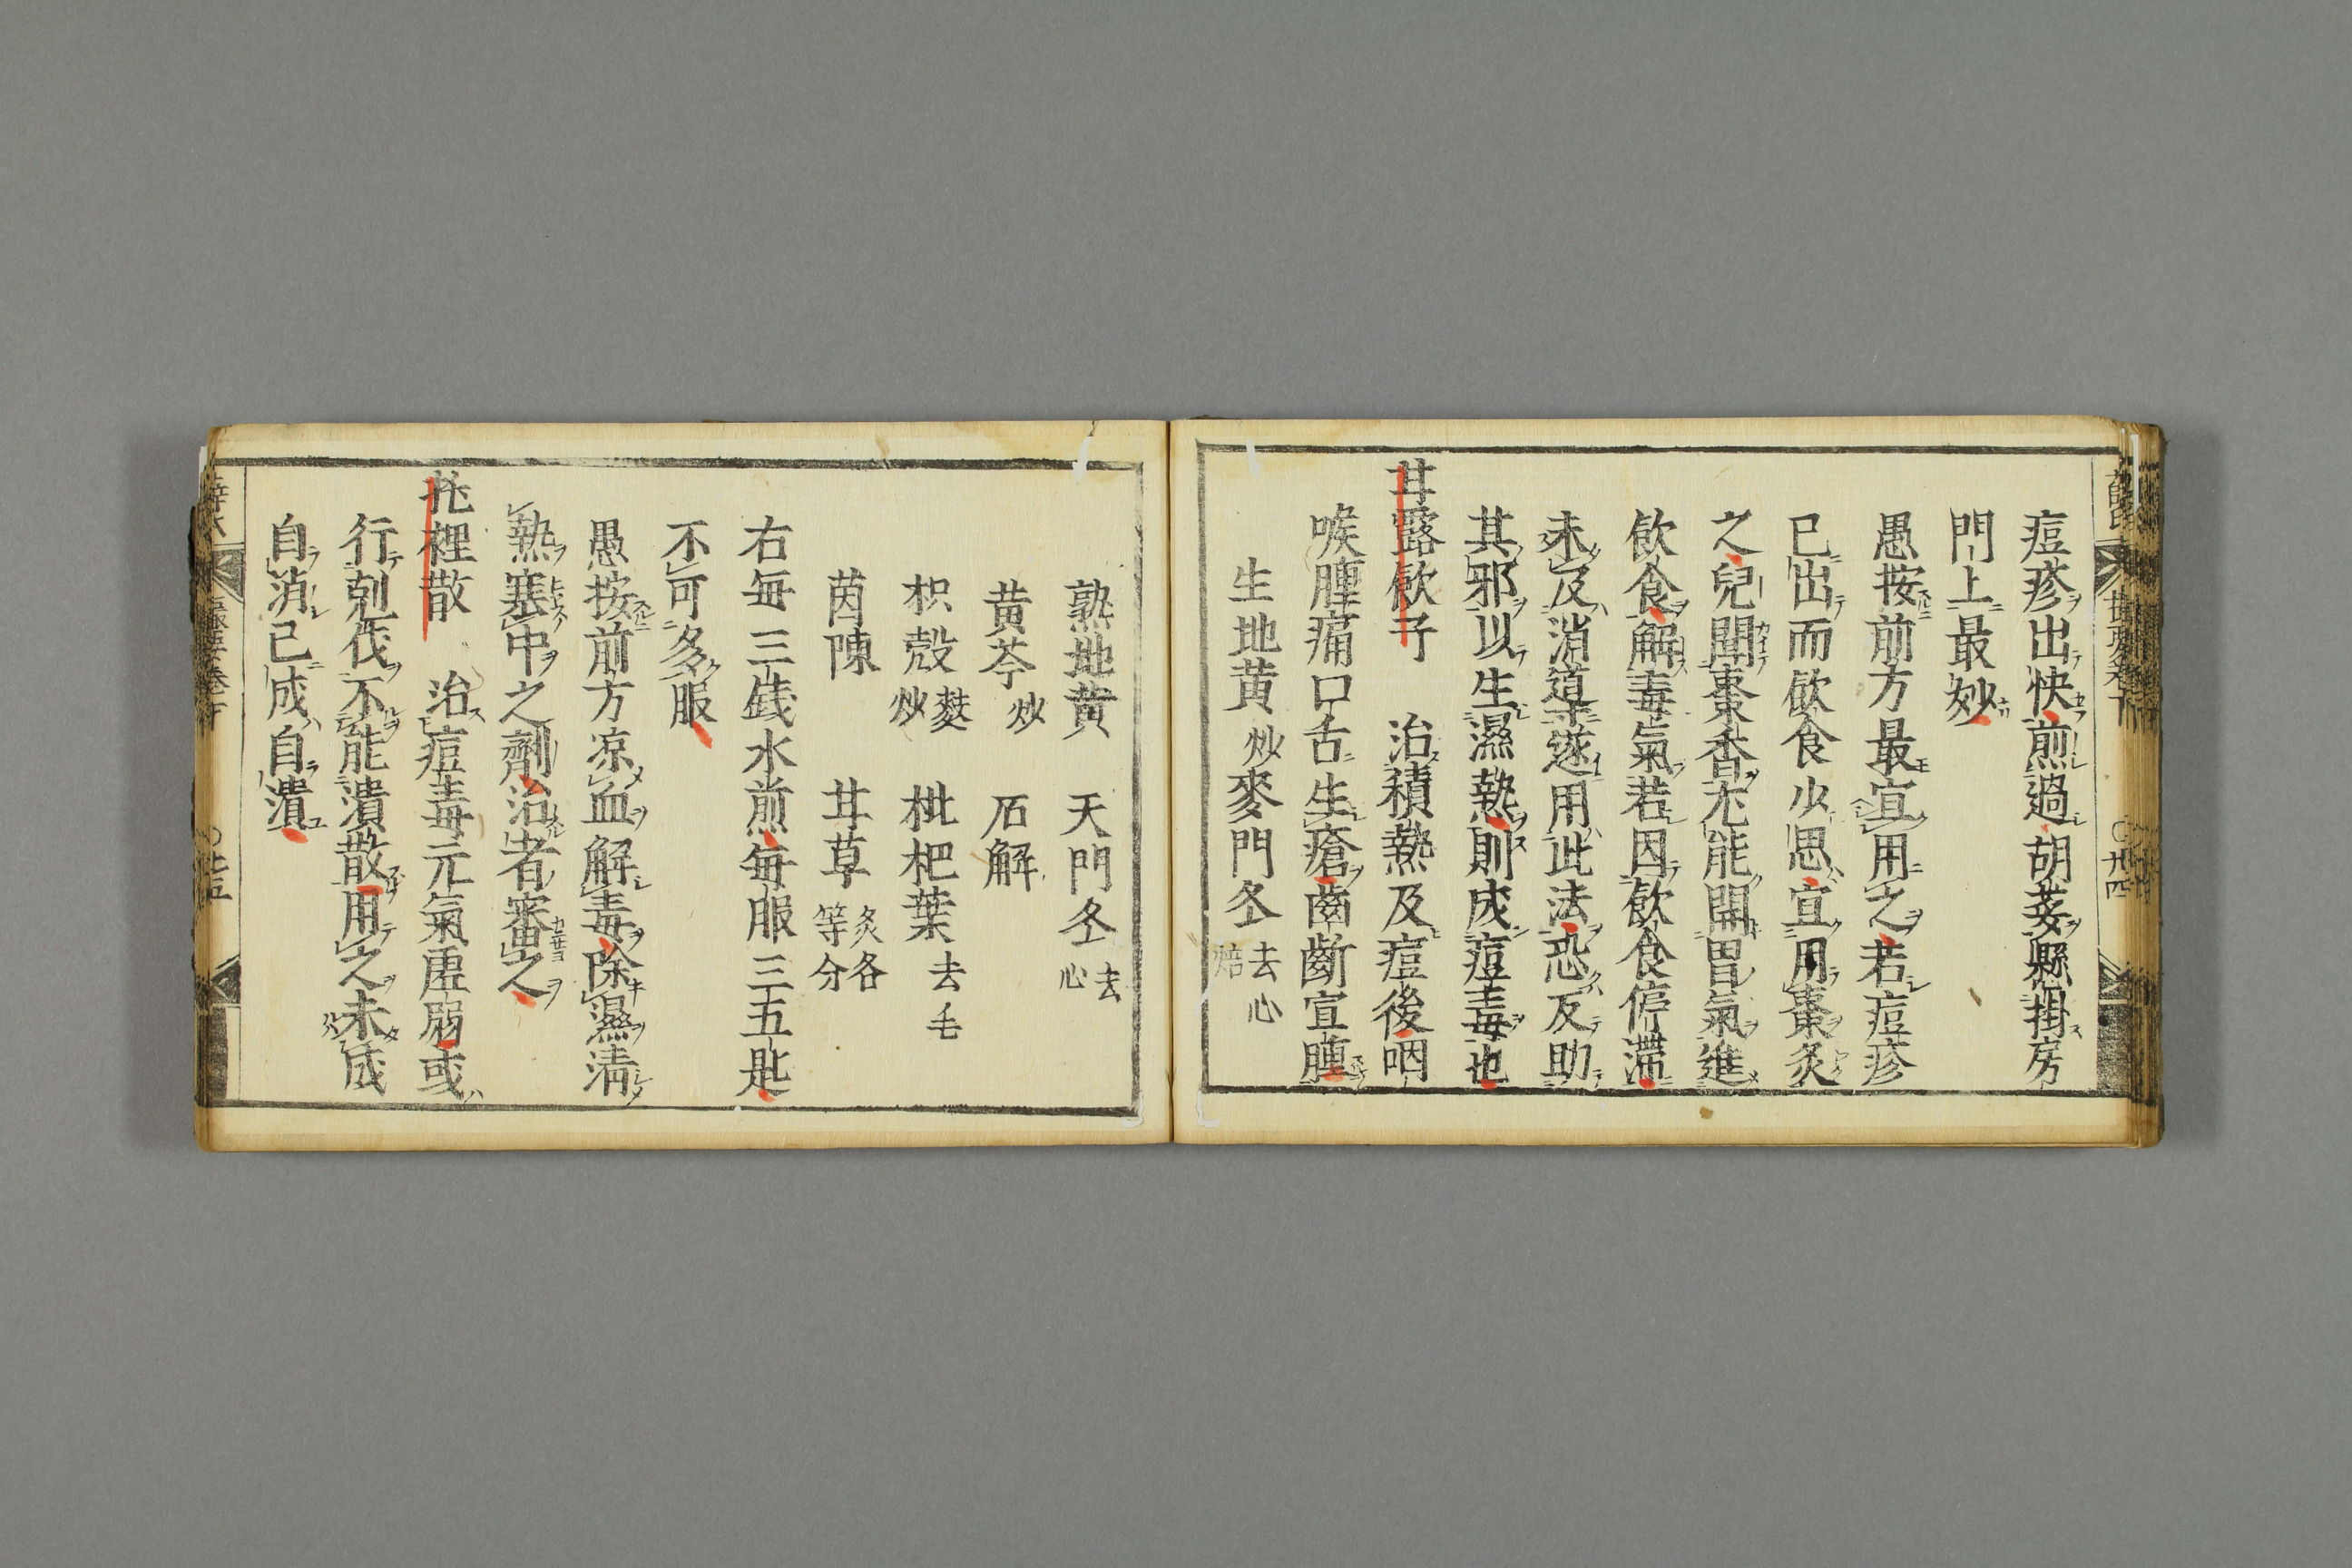 痘疹出快煎過胡荽懸掛房
門上最妙
愚按前方最宜用之若痘疹
已出而飲食少思宜用棗炙
之兒聞棗香尤能開胃氣進
飲食解毒氣若因飲食停滯
未及消導遂用此法恐反助
其邪以生濕熱則成痘毒也
甘露飲子 治積熱及痘後咽
喉腫痛口舌生瘡齒齗宣腫
生地黄炒 麥門冬去心焙
熟地黄 天門冬去心
黄芩炒 石斛
枳殻麩炒 枇杷葉去毛
茵陳 甘草炙各等分
右毎三錢水煎毎服三五匙
不可多服
愚按前方凉血解毒除濕清
熱塞中之劑治者審之
托裡散 治痘毒元氣虚弱或
行剋伐不能潰散用之未成
自消已成自潰